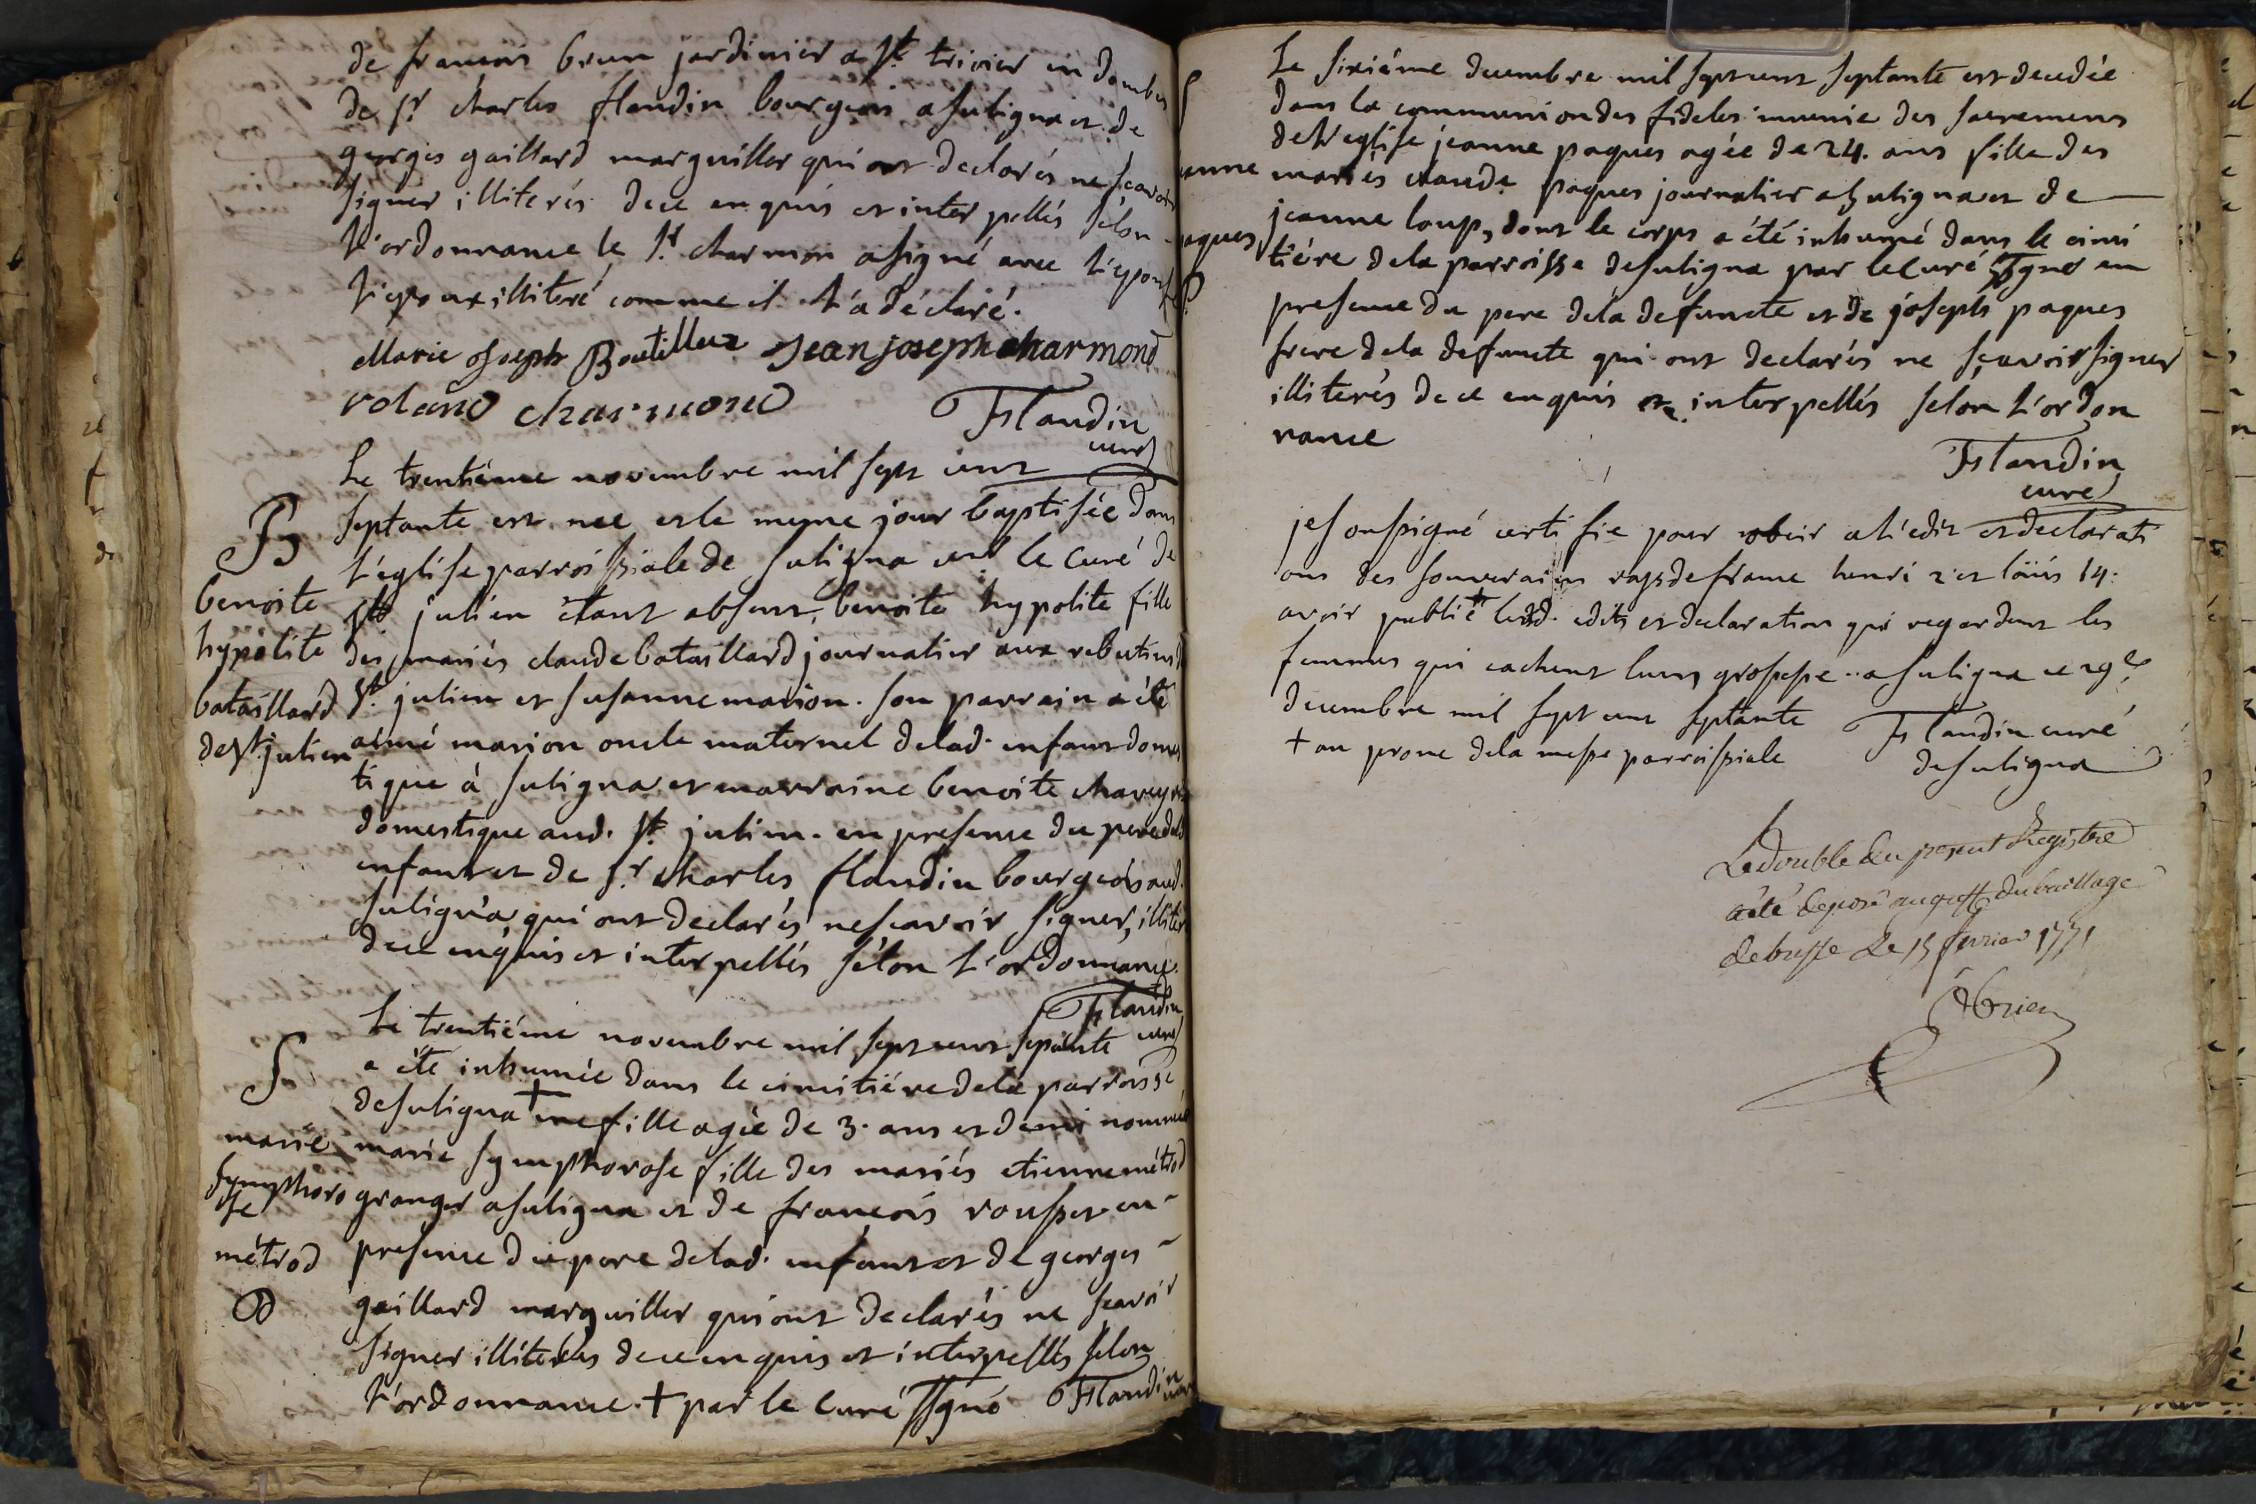 de francois brun jardinier a st. trivier en dombes
de sr. charles flandin bourgeois a suligna et de
georges gaillard marguiller qui ont declarés ne scavoir
signer illiterés de ce enquis et interpellés selon
l'ordonnance le sr. charmon a signé avec l'epouse
l'epoux illiteré comme il l'a déclaré.
Marie joseph Boutilleux jean joseph charmond
roland charmond Flandin
curé
B
benoite
hypolite
bataillard
de st. julien
Le trentiéme novembre mil sept cent
septante est née et le meme jour baptisée dans
l'église parroissiale de suligna le curé de
st. julien étant absent, benoite hypolite fille
des mariés claude bataillard journalier aux rebutins d
st. julien et susanne marion. son parrain a été
aimé marion oncle maternel de lad. enfant domes
tique à suligna et marraine benoite
domestique aud. st. julien. en presence du pere de lad
enfant et de sr. charles flandin bourgeois aud.
suligna qui ont declarés ne scavoir signer, illiter
de ce enquis et interpellés selon l'ordonnance.
Flandin
curé
S
marie
symphoro
se
métrod
Le trentiéme novembre mil sept cent septante
a été inhumée dans le cimitiére de la parroisse
de suligna + une fille agée de 3. ans et demi nommée
marie symphorose fille des mariés etienne métrod
granger a suligna et de francois rousset en
presence du pere de lad. enfant et de georges
gaillard marguiller qui ont declarés ne scavoir
signer illiterés de ce enquis et interpellés selon
l'ordonnance. + par le curé ssigné Flandin
curé
S
anne
aques
Le sixiéme decembre mil sept cent septante est decedée
dans la communion des fideles munie des sacremens
de l'eglise jeanne paques agée de 24. ans fille des
mariés claude paques journalier a suligna et de
jeanne loup, dont le corps a été inhumé dans le cimi
tiére de la parroisse de suligna par le curé ssigné en
presence du pere de la defuncte et de joseph paques
frere de la defuncte qui ont declarés ne sçavoir signer
illiterés de ce enquis et interpellés selon l'ordon
nance
Flandin
curé
je sousigné certifie pour obeir a l'edit et declarati
ons des souverains roys de france henri 2 et loüis 14.
avoir publié + lesd. edits et declaration qui regardent les
femmes qui cachent leurs grossesse .. a suligna ce 29e
decembre mil sept cent septante Flandin curé
+ au prone de la messe parroissiale de suligna
Le double du present Registre
a été deposé au greffe du baillage
de bresse le 15 fevrier 1771